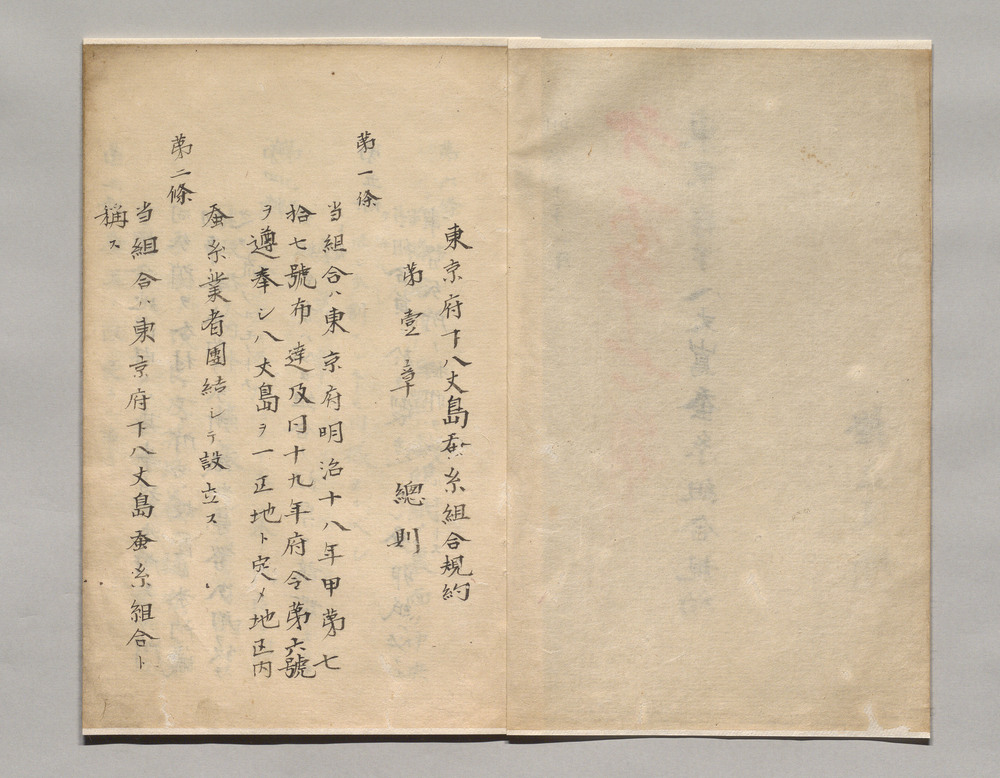 東京府下八丈島蚕糸組合規約
第壹章 總則
第一條
当組合ハ東京府明治十八年甲第七
拾七號布達及同十九年府令第六號
ヲ遵奉シ八丈島ヲ一区地ト定メ地区内
蚕糸業者團結シテ設立ス
第二條
当組合ハ東京府下八丈島蚕糸組合ト
稱ス